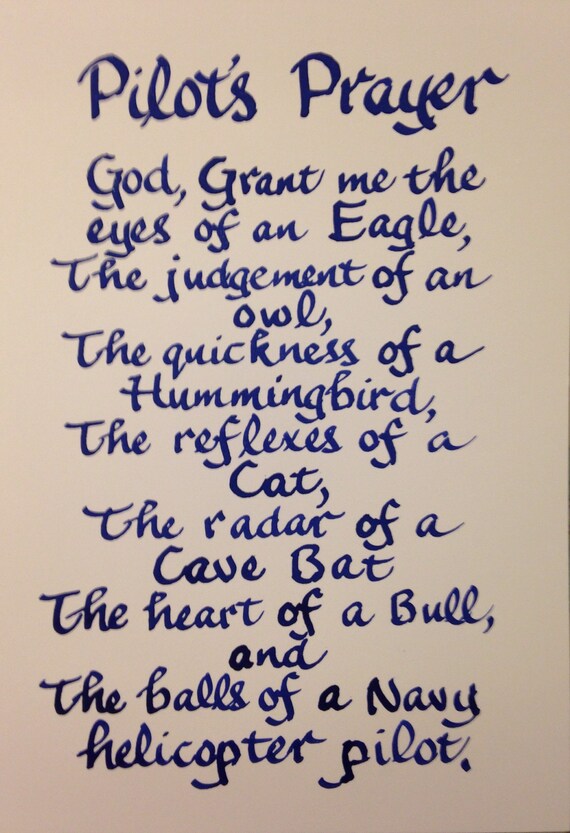 Pilot's Prayer
God, Grant me the
eyes of an Eagle,
The judgement of an
owl,
The quickness of a
Hummingbird,
The reflexes of a
Cat,
The radar of a
Cave Bat
The heart of a Bull,
and
The balls of a Navy
helicopter pilot.